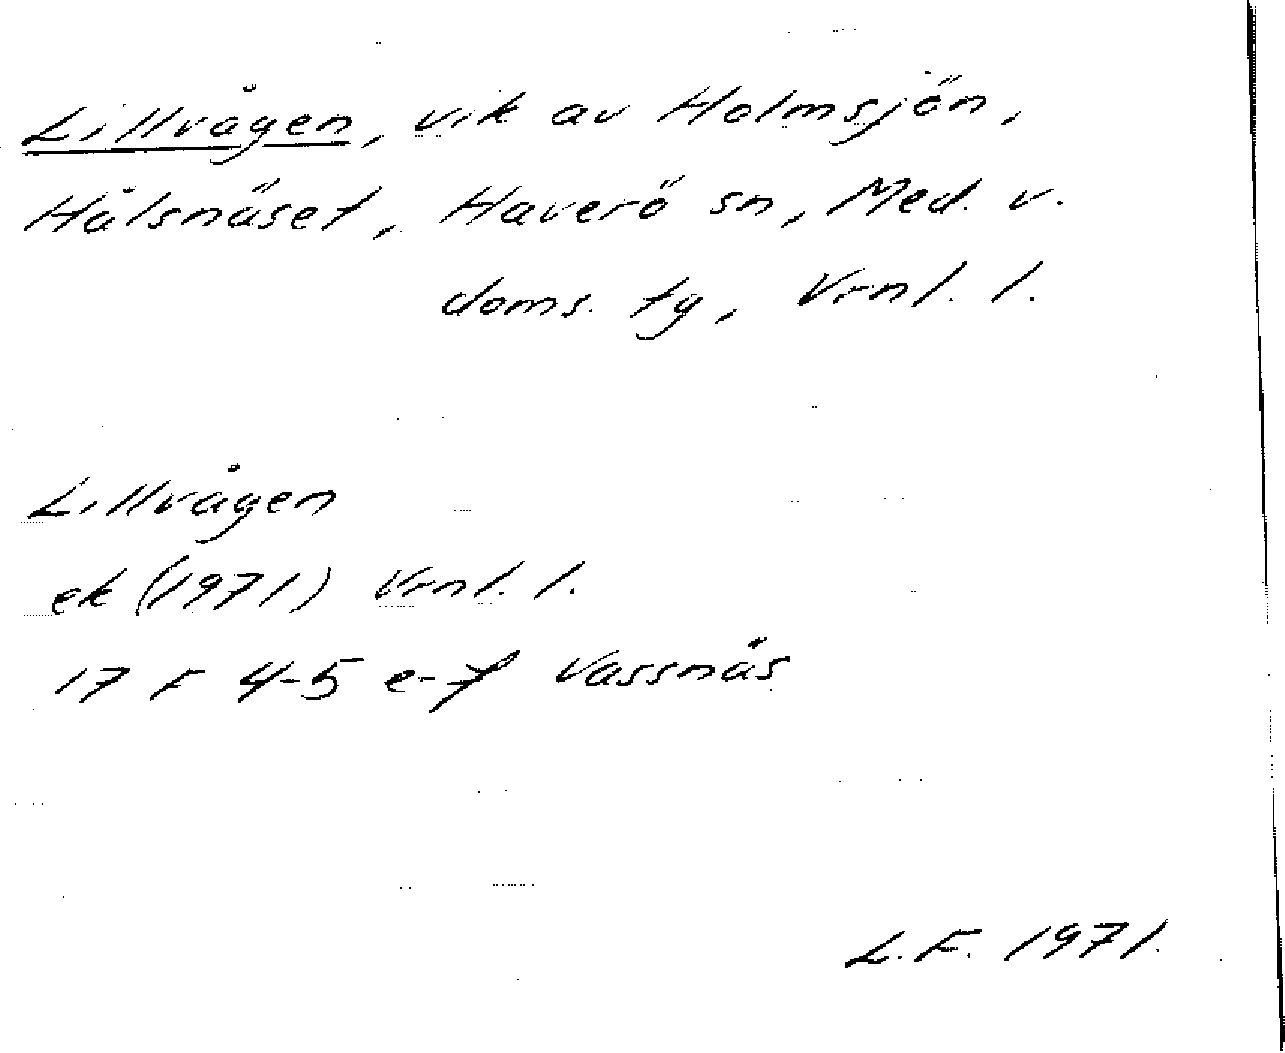 Lillvågen, vik av Holmsjön,
Hålsnäset, Haverö sn, Med. v.
doms. tg, Vrnl. l.
Lillvågen
ek (1971) Vrnl. l.
17 F 4-5 e-f Vassnäs
L.F. 1971.